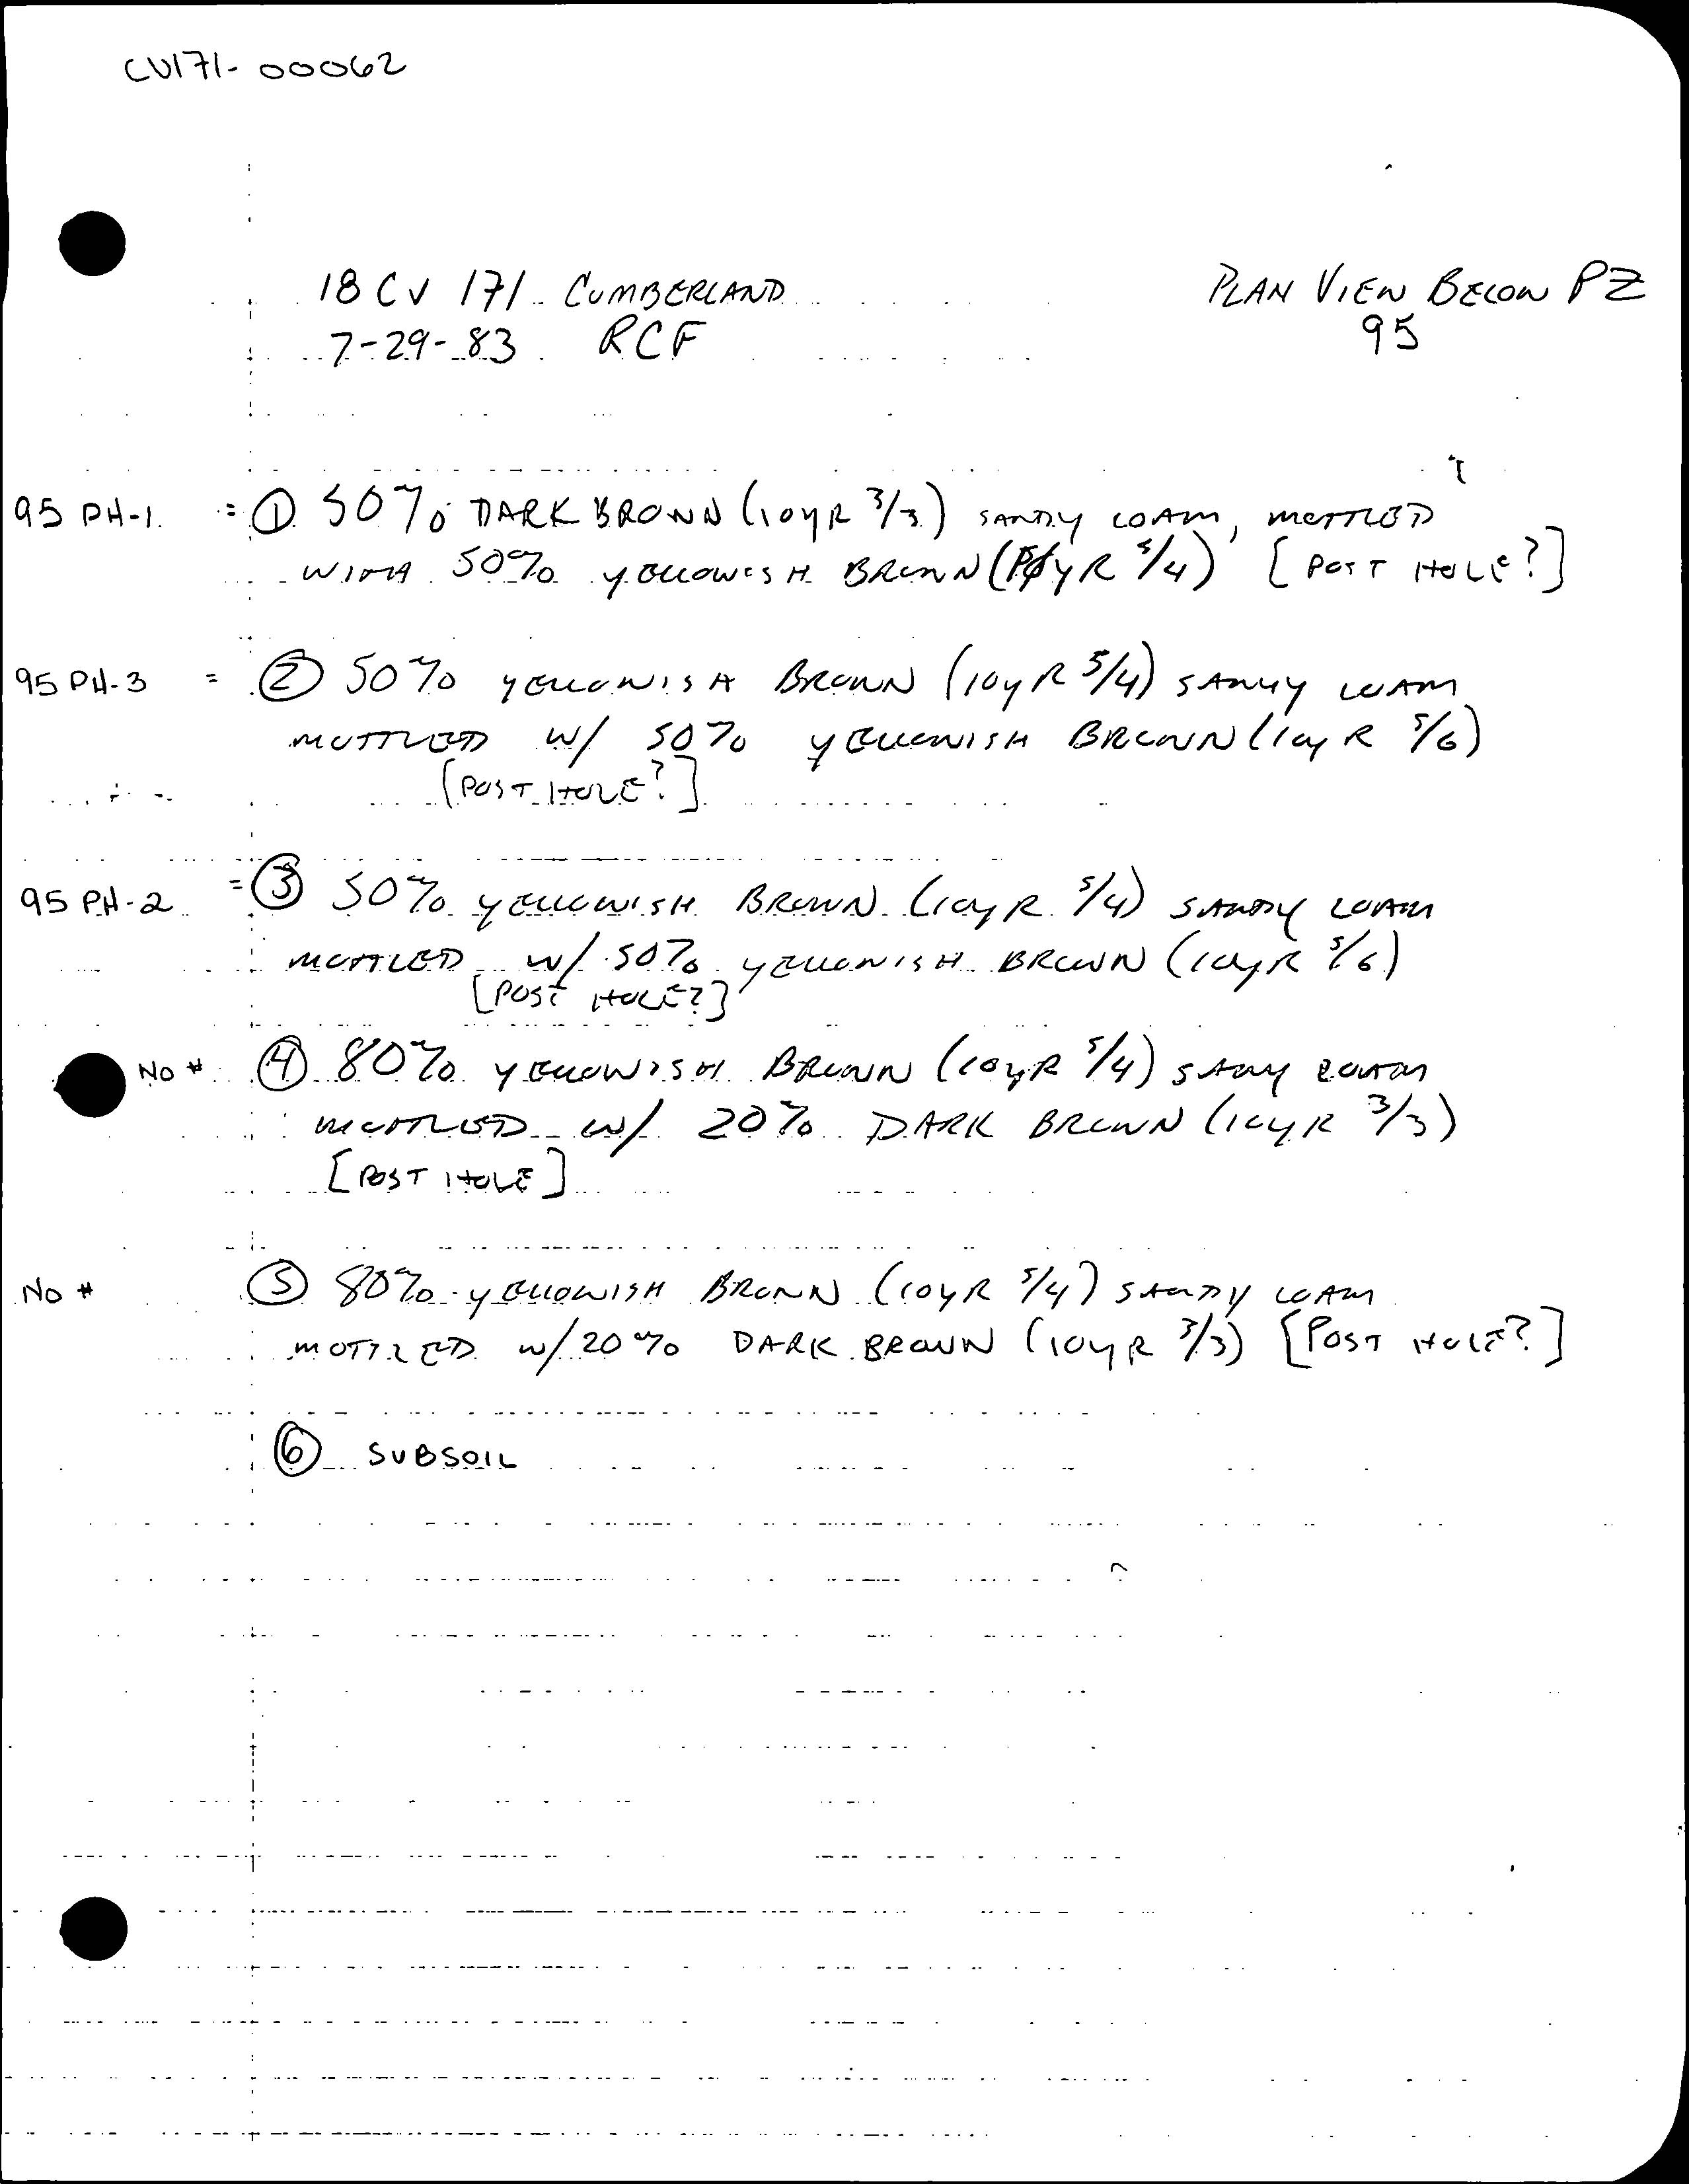 CV171-00062
18 CV 171 CUMBERLAND PLAN VIEW BELOW PZ
7-29-83 RCF 95
95 PH-1 = ① 50% DARK BROWN (10YR 3/3) SANDY LOAM, MOTTLED
WITH 50% YELLOWISH BROWN (10YR 5/4) [POST HOLE?]
95 PH-3 = ② 50% YELLOWISH BROWN (10YR 5/4) SANDY LOAM
MOTTLED W/ 50% YELLOWISH BROWN (10YR 5/6)
[POST HOLE?]
95 PH-2 = ③ 50% YELLOWISH BROWN (10YR 5/4) SANDY LOAM
MOTTLED W/ 50% YELLOWISH BROWN (10YR 5/6)
[POST HOLE?]
NO # ④ 80% YELLOWISH BROWN (10YR 5/4) SANDY LOAM
MOTTLED W/ 20% DARK BROWN (10YR 3/3)
[POST HOLE]
NO # ⑤ 80% YELLOWISH BROWN (10YR 5/4) SANDY LOAM
MOTTLED W/ 20% DARK BROWN (10YR 3/3) [POST HOLE?]
⑥ SUBSOIL